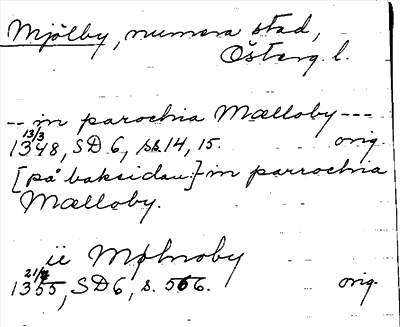 Mjölby, numera stad,
Österg. l.
-- in parochia Mælloby ---
13/3
1348, SD 6, s. 14, 15. orig.
[på baksidan:] in parrochia
Mælloby.
ii Mølnoby
21/7
1355, SD 6, s. 566. orig.